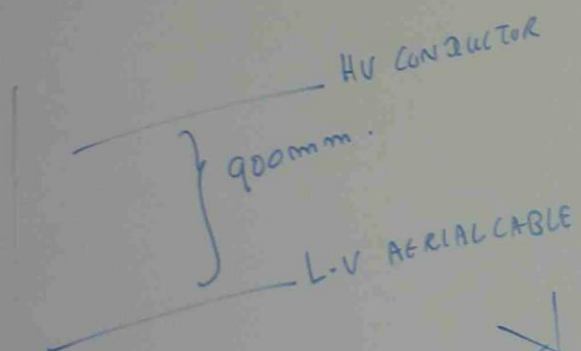 HV CONDUCTOR
900mm.
L.V AERIAL CABLE